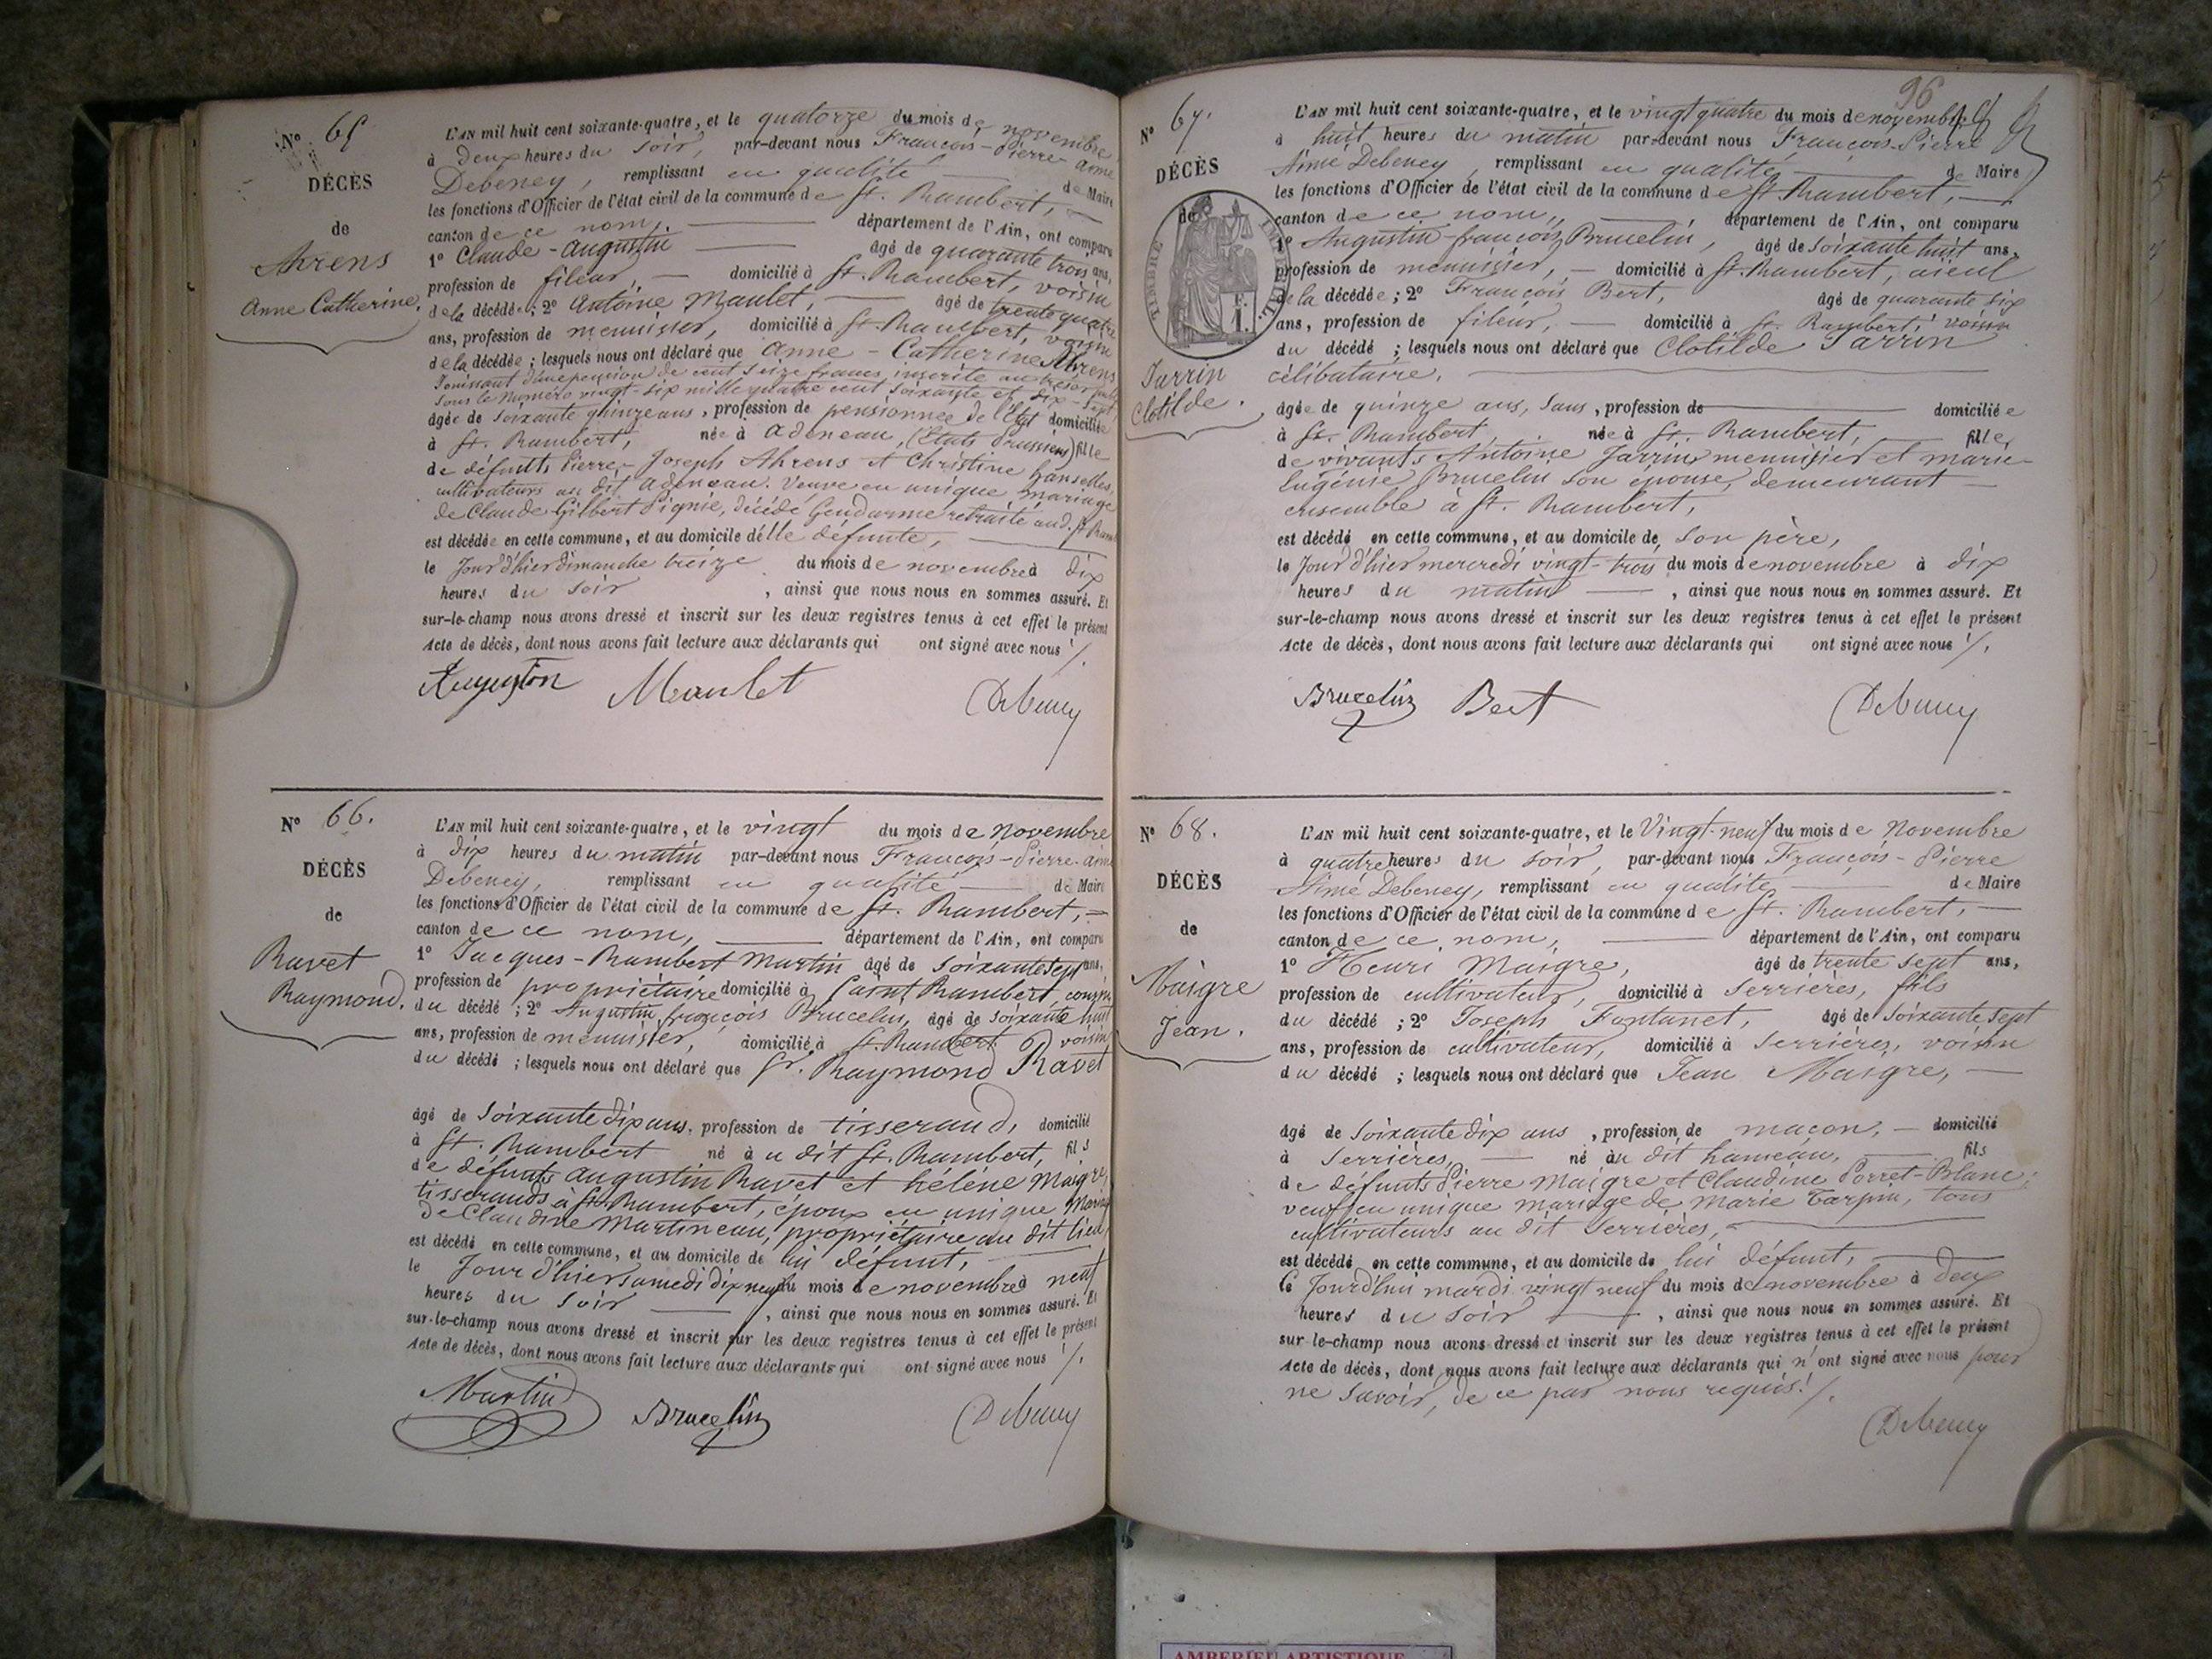 N° 65
DÉCÈS
de
Ahrens
Anne Catherine.
L'AN mil huit cent soixante-quatre, et le quatorze du mois de novembre
à deux heures du soir, par-devant nous François-Pierre-aimé
Debeney, remplissant en qualité de Maire
les fonctions d'Officier de l'état civil de la commune de St. Rambert,
canton de ce nom, département de l'Ain, ont comparu
1° Claude-Augustin âgé de quarante trois ans,
profession de fileur, domicilié à St. Rambert, voisin
de la décédée; 2° Antoine Maulet, âgé de trente quatre
ans, profession de menuisier, domicilié à St. Rambert, voisin
de la décédée; lesquels nous ont déclaré que Anne-Catherine Ahrens
Jouissant d'une pension de cent seize francs inscrite au trésor
sous le numéro vingt-six mille quatre cent soixante et dix-sept
âgée de soixante quinze ans, profession de pensionnée de l'Etat domiciliée
à St. Rambert, née à Adeneau, (Etats Prussiens) fille
de défunts Pierre-Joseph Ahrens et Christine hanselles,
cultivateurs au dit Adeneau. Veuve en unique mariage
de Claude Gilbert Pignié, décédé Gendarme retraité aud. St Ramb
est décédée en cette commune, et au domicile d'elle défunte,
le Jour d'hier dimanche treize du mois de novembre à dix
heures du soir, ainsi que nous nous en sommes assuré. Et
sur-le-champ nous avons dressé et inscrit sur les deux registres tenus à cet effet le présent
Acte de décès, dont nous avons fait lecture aux déclarants qui ont signé avec nous ./.
Augustin Maulet Debeney
N° 66.
DÉCÈS
de
Ravet
Raymond.
L'AN mil huit cent soixante-quatre, et le vingt du mois de Novembre
à dix heures du matin par-devant nous François-Pierre-aimé
Debeney, remplissant en qualité de Maire
les fonctions d'Officier de l'état civil de la commune de St. Rambert,
canton de ce nom, département de l'Ain, ont comparu
1° Jacques-Rambert Martin âgé de soixante sept ans,
profession de propriétaire domicilié à Saint Rambert, cousin
du décédé; 2° Augustin françois Brucelin, âgé de soixante huit
ans, profession de menuisier, domicilié à St. Rambert voisin
du décédé; lesquels nous ont déclaré que Sr. Raymond Ravet
âgé de soixante dix ans, profession de tisserand, domicilié
à St. Rambert né à u dit St. Rambert, fils
de défunts Augustin Ravet et hélène Maigre,
tisserands à St. Rambert, époux en unique Mariag
de Claudine Martineau, propriétaire au dit lieu,
est décédé en cette commune, et au domicile de lui défunt,
le Jour d'hier samedi dix neuf du mois de novembre à neuf
heures du soir, ainsi que nous nous en sommes assuré. Et
sur-le-champ nous avons dressé et inscrit sur les deux registres tenus à cet effet le présent
Acte de décès, dont nous avons fait lecture aux déclarants qui ont signé avec nous ./.
Martin Brucelin Debeney
96
N° 67.
DÉCÈS
de
TIMBRE IMPÉRIAL
F. 1.
Jarrin
Clotilde.
L'AN mil huit cent soixante-quatre, et le vingt quatre du mois de novembre
à huit heures du matin par-devant nous François-Pierre
Aimé Debeney, remplissant en qualité de Maire
les fonctions d'Officier de l'état civil de la commune de St. Rambert,
canton de ce nom, département de l'Ain, ont comparu
1° Augustin-françois Brucelin, âgé de soixante huit ans,
profession de menuisier, domicilié à St. Rambert, aieul
de la décédée; 2° François Bert, âgé de quarante six
ans, profession de fileur, domicilié à St. Rambert, voisin
du décédé; lesquels nous ont déclaré que Clotilde Jarrin
célibataire.
âgée de quinze ans, sans, profession de domiciliée
à St. Rambert née à St. Rambert, fille,
de vivants Antoine Jarrin menuisier et marie
Eugénie Brucelin son épouse, demeurant
ensemble à St. Rambert,
est décédé en cette commune, et au domicile de son père,
le Jour d'hier mercredi vingt-trois du mois de novembre à dix
heures du matin, ainsi que nous nous en sommes assuré. Et
sur-le-champ nous avons dressé et inscrit sur les deux registres tenus à cet effet le présent
Acte de décès, dont nous avons fait lecture aux déclarants qui ont signé avec nous ./.
Brucelin Bert Debeney
N° 68.
DÉCÈS
de
Maigre
Jean.
L'AN mil huit cent soixante-quatre, et le Vingt-neuf du mois de Novembre
à quatre heures du soir, par-devant nous François-Pierre
Aimé Debeney, remplissant en qualité de Maire
les fonctions d'Officier de l'état civil de la commune de St. Rambert,
canton de ce nom, département de l'Ain, ont comparu
1° Henri Maigre, âgé de trente sept ans,
profession de cultivateur, domicilié à Serrières, fils
du décédé; 2° Joseph Fontanet, âgé de soixante sept
ans, profession de cultivateur, domicilié à Serrières, voisin
du décédé; lesquels nous ont déclaré que Jean Maigre,
âgé de soixante dix ans, profession de maçon, domicilié
à Serrières, né àu dit hameau, fils
de défunts Pierre Maigre et Claudine Porret-Blanc;
veuf en unique mariage de Marie Tarpin, tous
cultivateurs au dit Serrières,
est décédé en cette commune, et au domicile de lui défunt,
Ce Jourd'hui mardi vingt neuf du mois de novembre à deux
heures du soir, ainsi que nous nous en sommes assuré. Et
sur-le-champ nous avons dressé et inscrit sur les deux registres tenus à cet effet le présent
Acte de décès, dont nous avons fait lecture aux déclarants qui n'ont signé avec nous pour
ne savoir, de ce par nous requis ./.
Debeney
AMBERIEU ARTISTIQUE